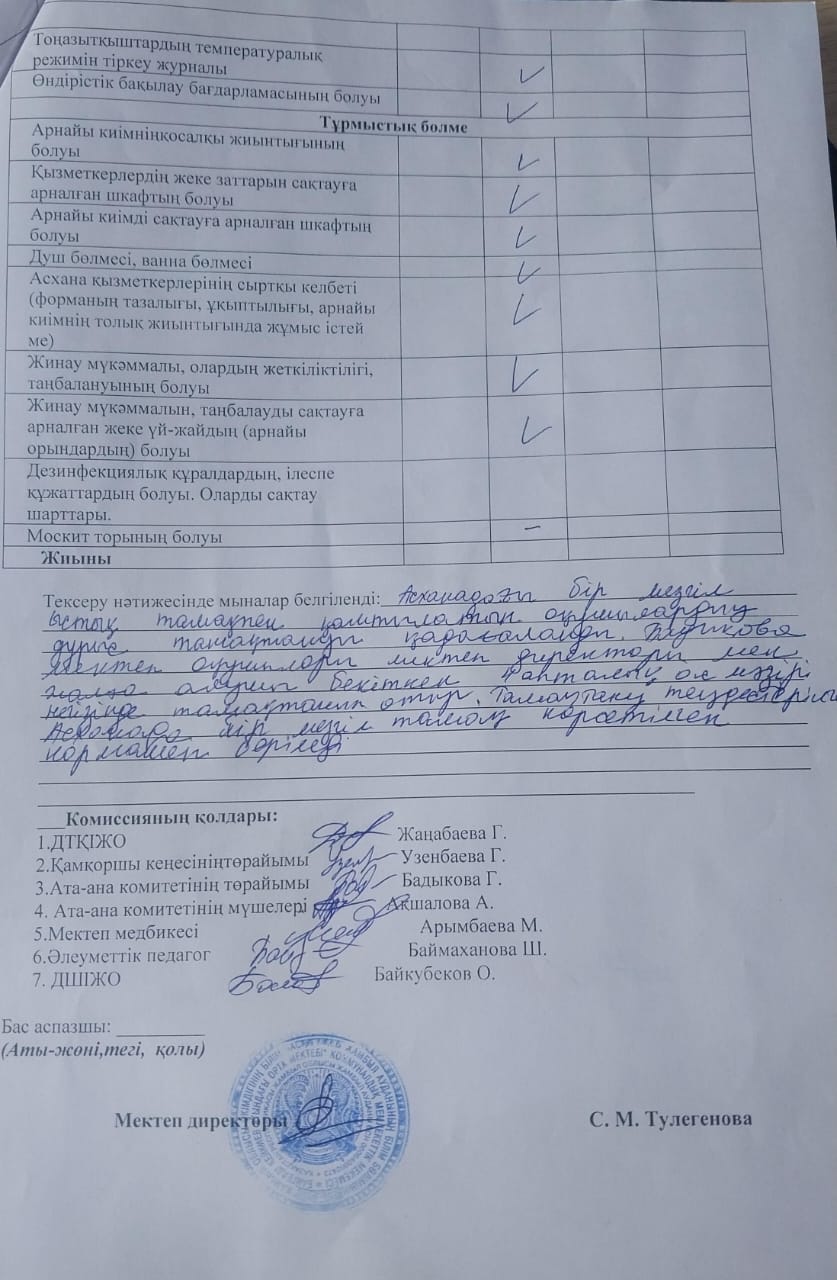 Тоңазытқыштардың температуралық
режимін тіркеу журналы
Өндірістік бақылау бағдарламасының болуы
Тұрмыстық бөлме
Арнайы киімніңқосалқы жиынтығының
болуы
Қызметкерлердің жеке заттарын сақтауға
арналған шкафтың болуы
Арнайы киімді сақтауға арналған шкафтың
болуы
Душ бөлмесі, ванна бөлмесі
Асхана қызметкерлерінің сыртқы келбеті
(форманың тазалығы, ұқыптылығы, арнайы
киімнің толық жиынтығында жұмыс істей
ме)
Жинау мүкәммалы, олардың жеткіліктілігі,
таңбалануының болуы
Жинау мүкәммалын, таңбалауды сақтауға
арналған жеке үй-жайдың (арнайы
орындардың) болуы
Дезинфекциялық құралдардың, ілеспе
құжаттардың болуы. Оларды сақтау
шарттары.
Москит торының болуы –
Жиыны
Тексеру нәтижесінде мыналар белгіленді: Асханадағы бір мезгіл
ыстық тамақпен қамтылатын оқушылардың
тамақтануы қадағаланды.
мектеп оқушылары мектеп директоры мен
бекіткен апталық ас мәзірі
негізінде тамақтанып отыр. Тамақтану
Асханада бір мезгіл тамақ көрсетілген
нормамен беріледі
Комиссияның қолдары:
1.ДТҚІЖО Жаңабаева Г.
2.Қамқоршы кеңесініңтөрайымы Узенбаева Г.
3.Ата-ана комитетінің төрайымы Бадыкова Г.
4. Ата-ана комитетінің мүшелері Ақшалова А.
5.Мектеп медбикесі Арымбаева М.
6.Әлеуметтік педагог Баймаханова Ш.
7. ДШІЖО Байкубеков О.
Бас аспазшы:
(Аты-жөні,тегі, қолы)
Мектеп директоры С. М. Тулегенова